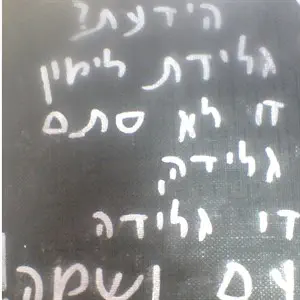 הידעת?
גלידת לימון
זו לא סתם
גלידה,
זו גלידה
עם נשמה!